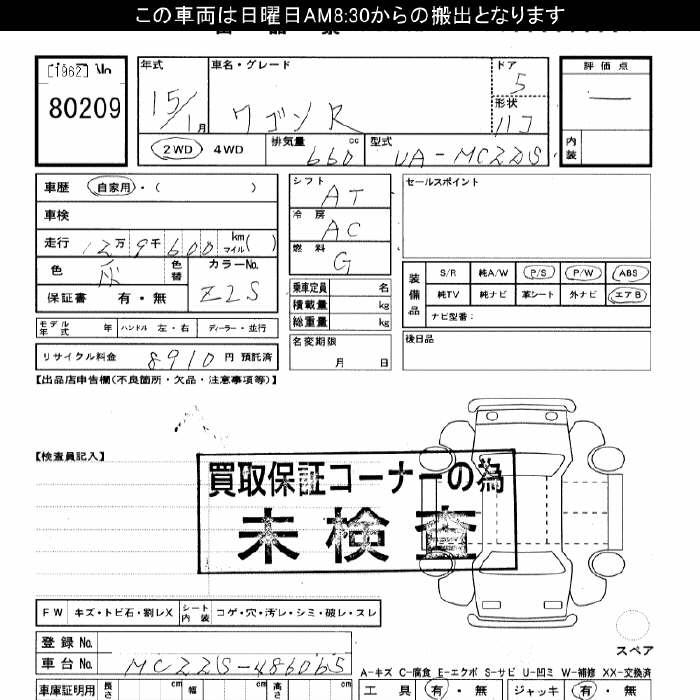 この車両は日曜日AM8:30からの搬出となります
[1962] No
80209
年式 15/1月
車名・グレード ワゴンR
ドア 5
形状 ハコ
評価点 —
内装
2WD 4WD
排気量 660 cc
型式 UA-MCZZS
車歴 自家用・( )
車検
走行 12万9千600 km マイル ( )
色 灰 色替
カラーNo. Z2S
保証書 有・無
モデル年式 年 ハンドル 左・右 ディーラー・並行
リサイクル料金 8910 円 預託済
シフト AT
冷房 AC
燃料 G
乗車定員 名
積載量 kg
総重量 kg
名変期限 月 日
セールスポイント
装備品
S/R 純A/W P/S P/W ABS
純TV 純ナビ 革シート 外ナビ エアB
ナビ型番:
後日品
【出品店申告欄(不良箇所・欠品・注意事項等)】
【検査員記入】
買取保証コーナーの為
未検査
FW キズ・トビ石・劃レX シート内装 コゲ・穴・汚レ・シミ・破レ・スレ
登録No.
車台No. MCZZS-486065
スペア
A-キズ C-腐食 E-エクボ S-サビ U-凹ミ W-補修 XX-交換済
車庫証明用 長さ cm 幅 cm 高さ cm
工具 有・無 ジャッキ 有・無